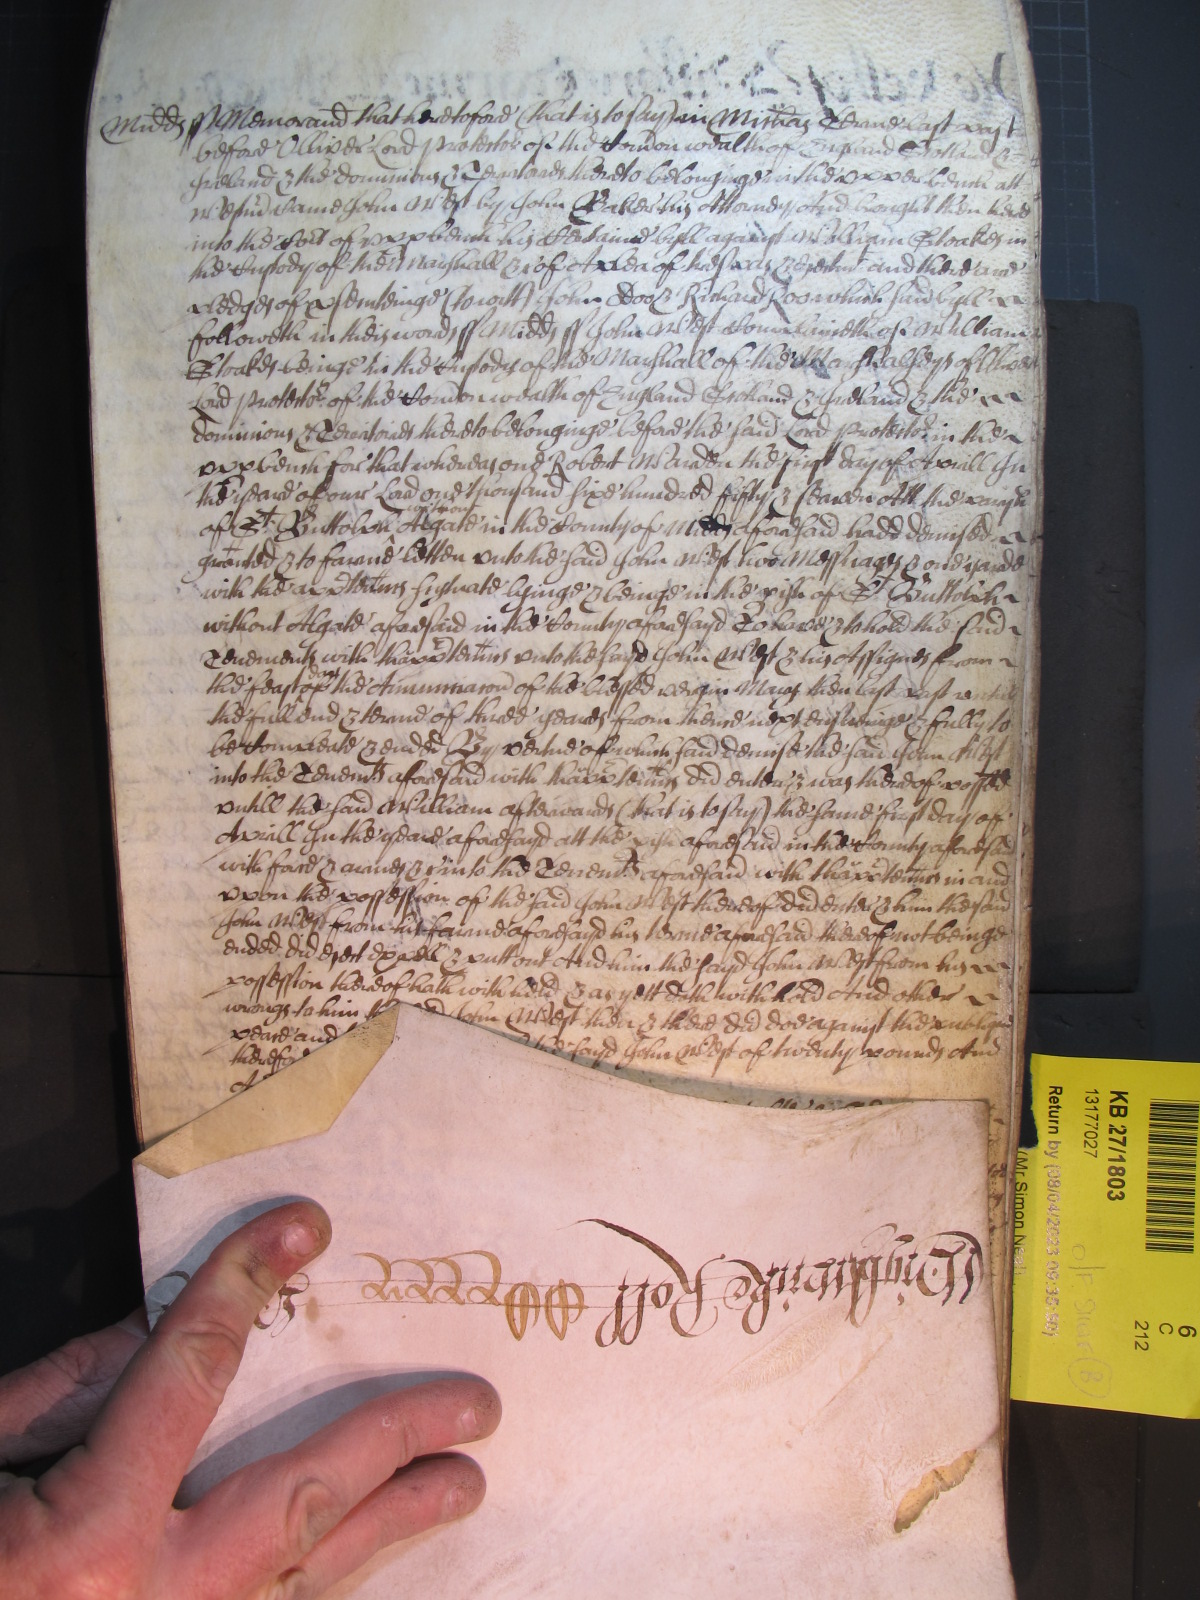 Midds ss Memorand that heretofore (that is to say) in Michas Terme last past
before Olliver Lord Protector of the Comon wealth of England Scotland &
Ireland & the dominions & Territories thereto belonginge in the upper bench att
Westmr came John West by John Baker his Attorney And brought then here
into the Court of upp bench his certaine byll against William Stoakes in
the Custody of the Marshall &c of A plea of trespas & and there are
pledges of psecuteinge (to witt) John Doo & Richard Roo which said byll
followeth in theis words ss Midds ss John West Complaineth of William
Stoakes beinge in the Custody of the Marshall of the Marshalseys of Olliver
Lord Protector of the Comon wealth of England Scotland & Ireland & the
dominions & Territories thereto belonginge before the said Lord Protector in the
upp bench for that whereas one Robert Warden the first day of Aprill In
the yeare of our Lord one thousand sixe hundred fifty & seaven Att the parish
of St Buttolph without Algate in the County of Midds aforesaid hadd demised
graunted & to farme letten unto the said John West two Messuages & one yarde
with the apptennts scytuate lyinge & beinge in the pish of St Buttolph
without Algate aforesaid in the County aforesayd To have & to hold the said
Tenements with thapptennts unto the sayd John West & his Assignes from
the feast day of the Annunciacon of the blessed virgin Mary then last past untill
the full end & terme of three yeares from thence next ensueinge & fully to
be Compleate & ended By vertue of which said demise the said John West
into the Tenemts aforesaid with thapptennts did enter & was thereof possed
untill the said William afterwards (that is to say) the same first day of
Aprill In the yeare aforesayd att the pish aforesaid in the County aforesaid
with force & armes &c into the Tenemts aforesaid with thapptennts in and
upon the possession of the said John West thereof did enter & him the said
John West from his farme aforesayd his terme aforesaid thereof not beinge
ended did eject expell & putt out And him the sayd John West from his
possession thereof hath with held & as yett doth with hold And other
wrongs to him the said John West then & there did doe against the publique
peace and the sayd John West of twenty pounds And
therefore
Wightwicke Roll
KB 27/1803
13177027
Return by (08/04/2023 09:35:50)
(Mr Simon Neal)
6
C
212